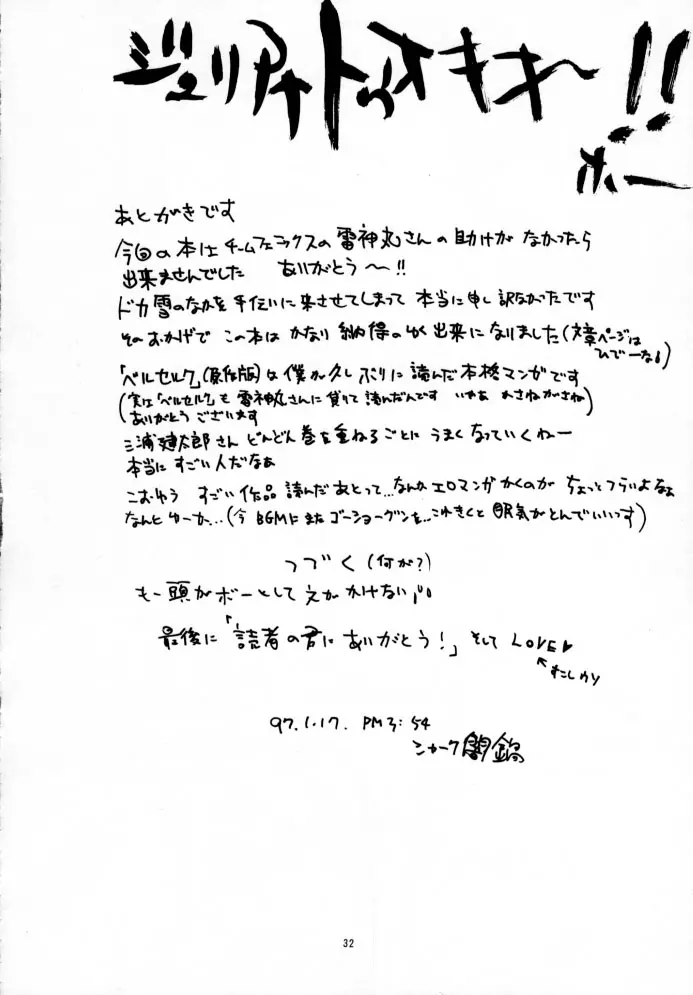 ジュリアナトゥオキオー!!
ボー
あとがきです
今回の本はチームフェニックスの雷神丸さんの助けがなかったら
出来ませんでした ありがとう〜!!
ドカ雪のなかを手伝いに来させてしまって本当に申し訳なかったです
そのおかげでこの本はかなり納得のゆく出来になりました(文章ページは
ひでーなぁ)
「ベルセルク」(原作版)は僕が久しぶりに読んだ本格マンガです
(実は「ベルセルク」も雷神丸さんに貸りて読んだんです いやぁ かさねがさね
ありがとうございます)
三浦建太郎さん どんどん巻を重ねるごとに うまくなっていくねー
本当にすごい人だなぁ
こおゆう すごい作品 読んだあとって…なんかエロマンガかくのが ちょっとつらいよなぁ
なんとゆーか…(今BGMにまたゴーショーグンを…これきくと眠気がとんでいいっす)
つづく(何が?)
もー頭がボーとして文がかけない
最後に「読者の君にありがとう!」そして LOVE♥
97.1.17. PM3:54
シャーク闇鍋
32